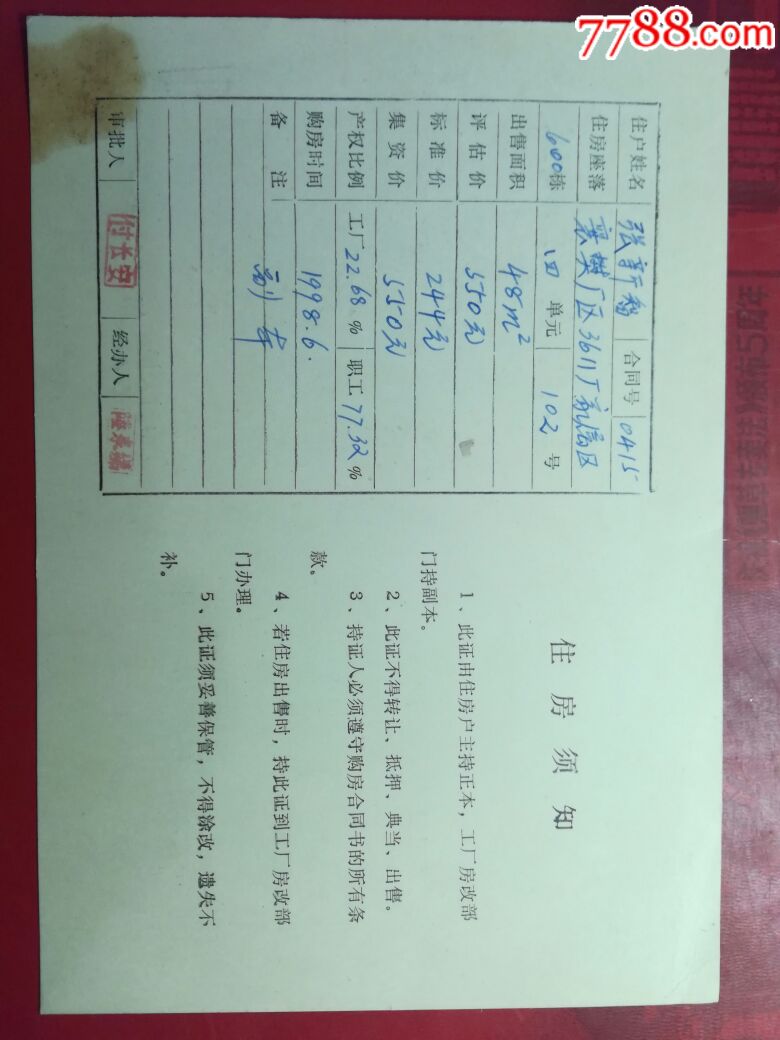 7788.com
住户姓名 张新 合同号 0415
住房座落 襄樊厂区3611厂新福区
600栋 四 单元 102 号
出售面积 48m²
评估价 550元
标准价 244元
集资价 550元
产权比例 工厂22.68% 职工77.32%
购房时间 1998.6.
备注 副本
审批人 付长安 经办人
住房须知
1、此证由住房户主持正本，工厂房改部
门持副本。
2、此证不得转让、抵押、典当、出售。
3、持证人必须遵守购房合同书的所有条
款。
4、若住房出售时，持此证到工厂房改部
门办理。
5、此证须妥善保管，不得涂改，遗失不
补。